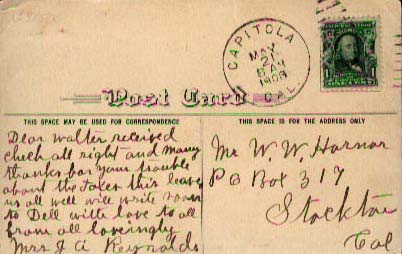 CAPITOLA
MAY
21
5 AM
1908
CAL.
Post Card
THIS SPACE MAY BE USED FOR CORRESPONDENCE
THIS SPACE IS FOR THE ADDRESS ONLY
Dear Walter received
check all right and many
thanks for your trouble
about the taxes this leaves
us all well will write soon
to Dell with love to all
from all lovingly
Mrs J A Reynolds
Mr W. W. Harnar
P O Box 317
Stockton
Cal